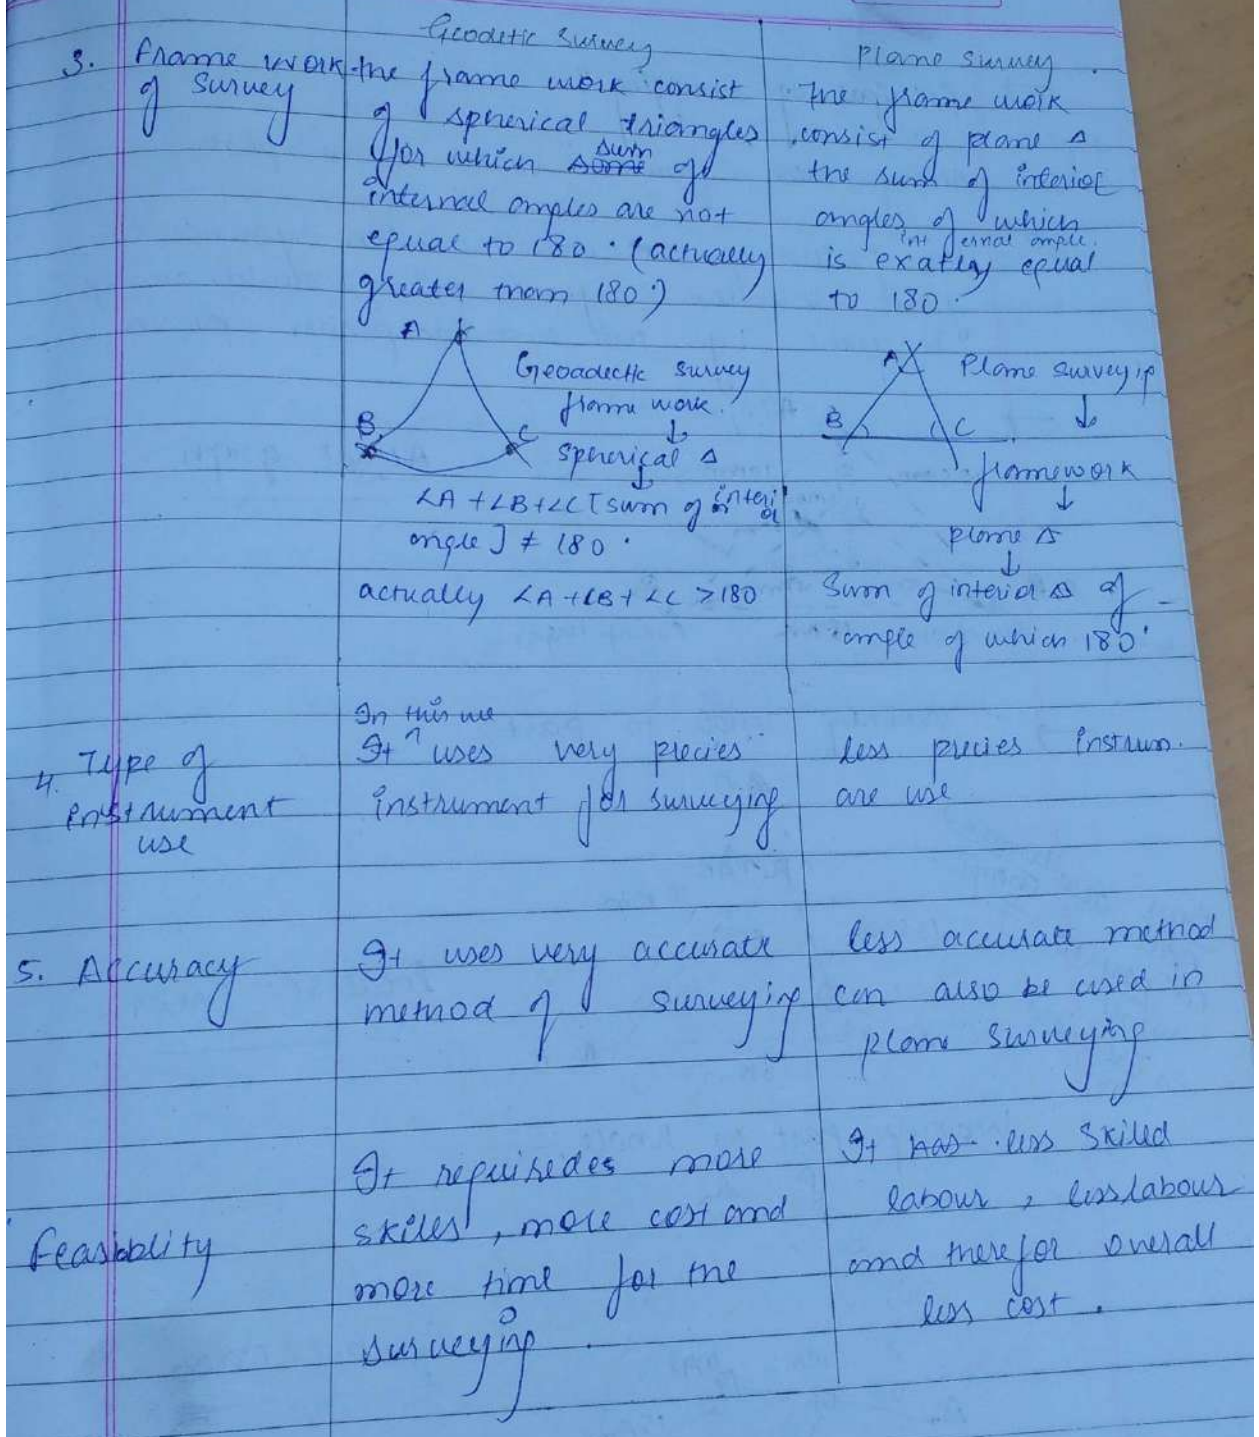 Geodetic Survey
Plane Survey.
3. Frame work
of Survey
the frame work consist
of spherical triangles
for which sum of
internal angles are not
equal to 180° (actually
greater than 180°)
The frame work
consist of plane Δ
the sum of interior
angles of which
internal angle.
is exatley equal
to 180°
A
B
C
Geoadectic survey
frame work.
↓
spherical Δ
↓
∠A + ∠B + ∠C [sum of interior
angle] ≠ 180°
actually ∠A + ∠B + ∠C > 180
A
B
C
Plane surveyip
↓
framework
↓
plane Δ
↓
Sum of interior Δ of
angle of which 180°
4. Type of
instrument
use
In this we
It uses very piecies
instrument for surveying
less precies instrum.
are use
5. Accuracy
It uses very accurate
method of surveying
less accurate method
can also be used in
plane surveying
Feasiablity
It requiredes more
skills, more cost and
more time for the
surveying.
It has less skilled
labour, less labour
and therefor overall
less cost.